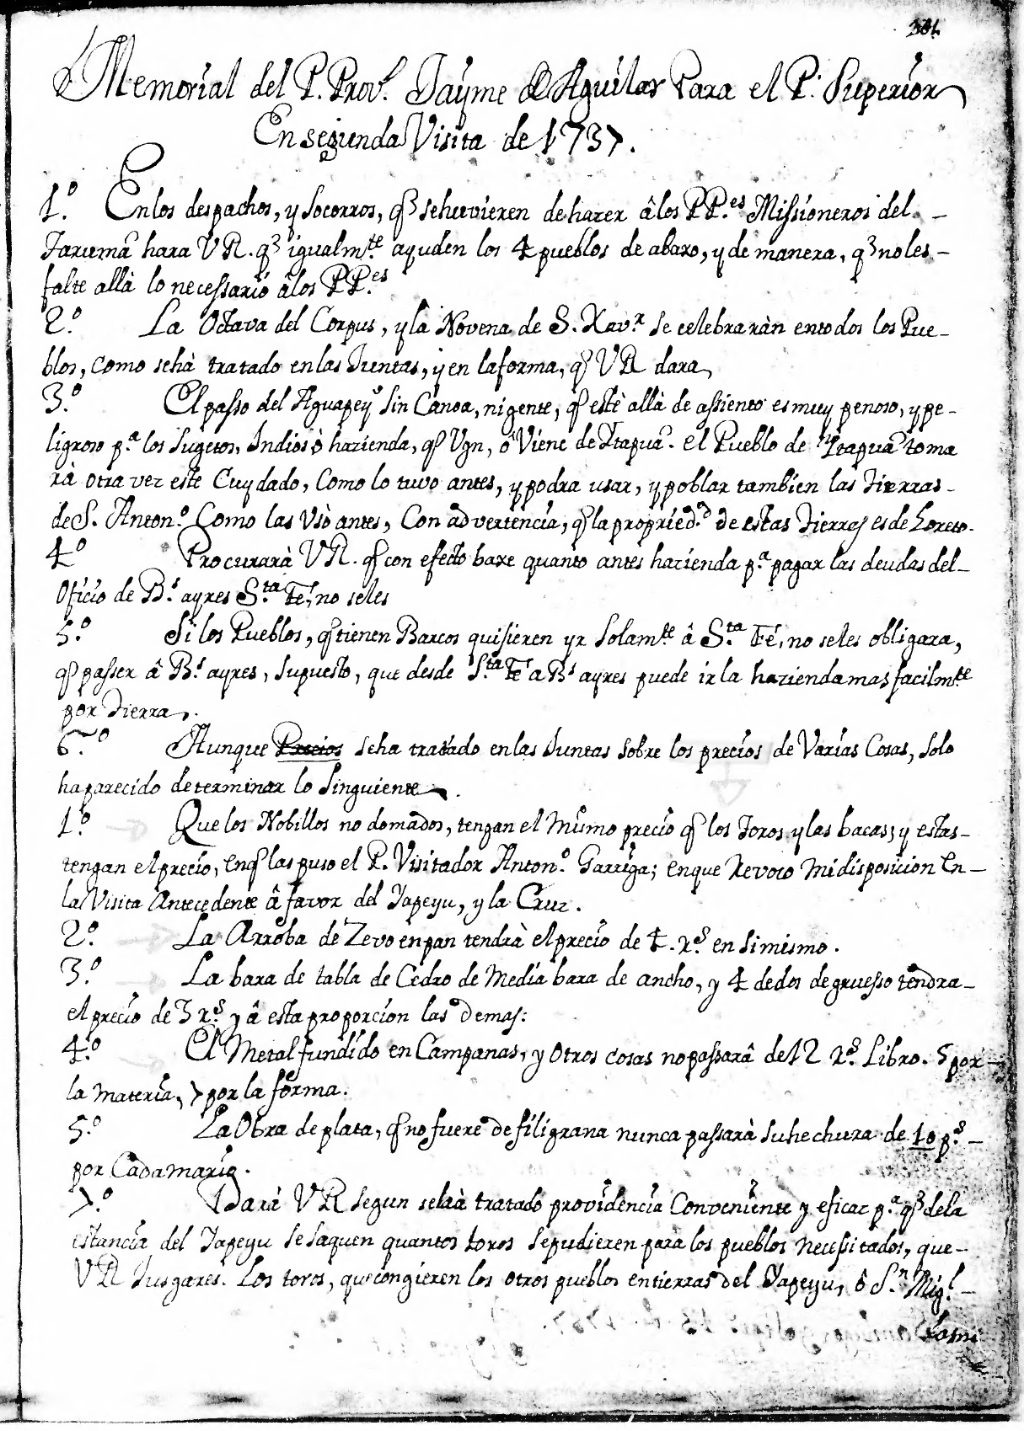 Memorial del P. Prov.l Jayme de Aguilar Para el P. Superior
En segunda Visita de 1737.
1.º En los despachos, y socorros, q̃ se huvieren de hazer â los PP.es Missioneros del
Taruma hara VR. q̃ igualm.te ayuden los 4 pueblos de abaxo, y de manera, q̃ no les
falte allà lo necessario âlos PP.es
2.º La Octava del Corpus, y la Novena de S. Xav.r se celebraràn en todos los Pue-
blos, como sehà tratado en las Juntas, y en la forma, q̃ VR dara,
3.º El passo del Aguapeỹ sin Canoa, ni gente, q̃ estè allà de assiento es muy penoso, y pe-
ligroso p.a los Sugetos, Indios ò hazienda, q̃ Vgn, ô Viene de Itapua. el Pueblo de Itapua toma
rà otra vez este Cuydado, Como lo tuvo antes, y podra usar, y poblar tambien las Tierras
de S. Anton.º Como las Usò antes, Con advertencia, q̃ la propried.d de estas Tierras es de Loreto.
4.º Procurarà VR. q̃ con efecto baxe quanto antes hazienda p.a pagar las deudas del
Oficio de B.s ayres S.ta Fé, no seles
5.º Si los Pueblos, q̃ tienen Barcos quisieren yr solam.te â S.ta Fé, no seles obligara,
q̃ passen â B.s ayres, supuesto, que desde S.ta Fé a B.s ayres puede ir la hazienda mas facilm.te
por Tierra.
6.º Aunque Precios seha tratado en las Juntas sobre los precios de Varias Cosas, solo
ha parecido determinar lo Singuiente.
1.º Que los Nobillos no domados, tengan el mismo precio q̃ los Toros, y las bacas; y estas
tengan el precio, en q̃ las puso el P. Visitador Anton.º Garriga; en que Revoco mi disposicion En
la Visita Antecedente â favor del Yapeyu, y la Cruz.
2.º La Arroba de Zevo en pan tendrà el precio de 4. r.s en si mismo.
3.º La bara de tabla de Cedro de Media bara de ancho, y 4 dedos de gruesso tendra
el precio de 3 r.s y â esta proporcion las demas:
4.º El Metal fundido en Campanas, y otros cosas no passarâ de 12 r.s Libro. 5 por
la materia, 7 por la forma.
5.º La Obra de plata, q̃ no fuere de filigrana nunca passarà su hechura de 10 p.s
por Cada marco.
7.º Darà VR segun sehà tratado providencia Conveniente y eficaz p.a q̃ de la
estancia del Yapeyu se saquen quantos toros sepudieren para los pueblos necessitados, que
VR Jusgares. Los toros, que congieren los otros pueblos en tierras del Yapeyu, ô S.n Mig.l